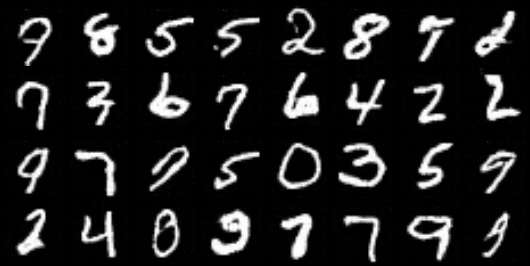 9 8 5 5 2 8 9 2
7 3 6 7 6 4 2 2
9 7 7 5 0 3 5 9
2 4 0 9 7 7 9 9